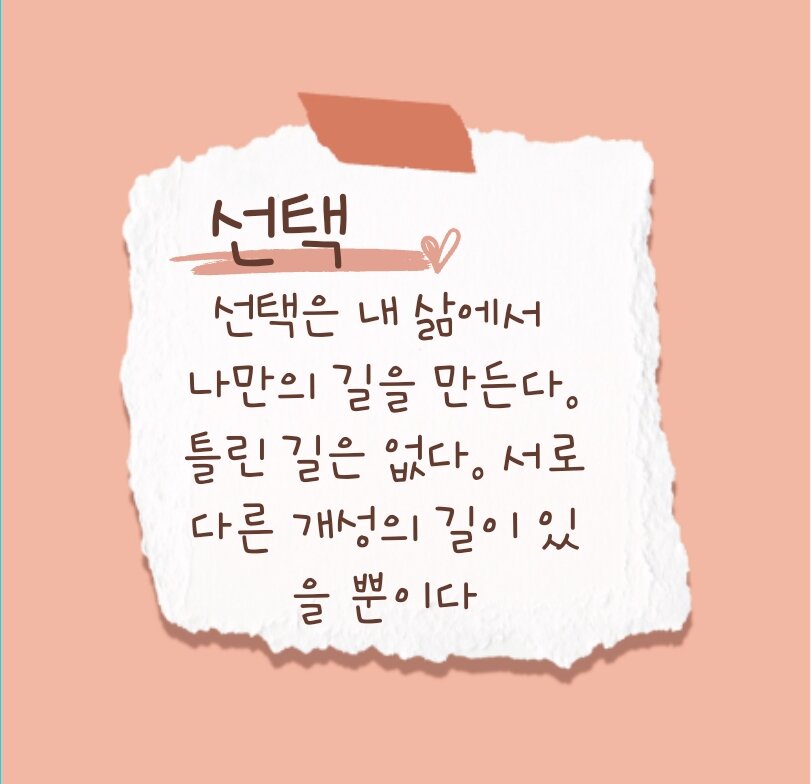 선택
선택은 내 삶에서
나만의 길을 만든다.
틀린 길은 없다. 서로
다른 개성의 길이 있
을 뿐이다